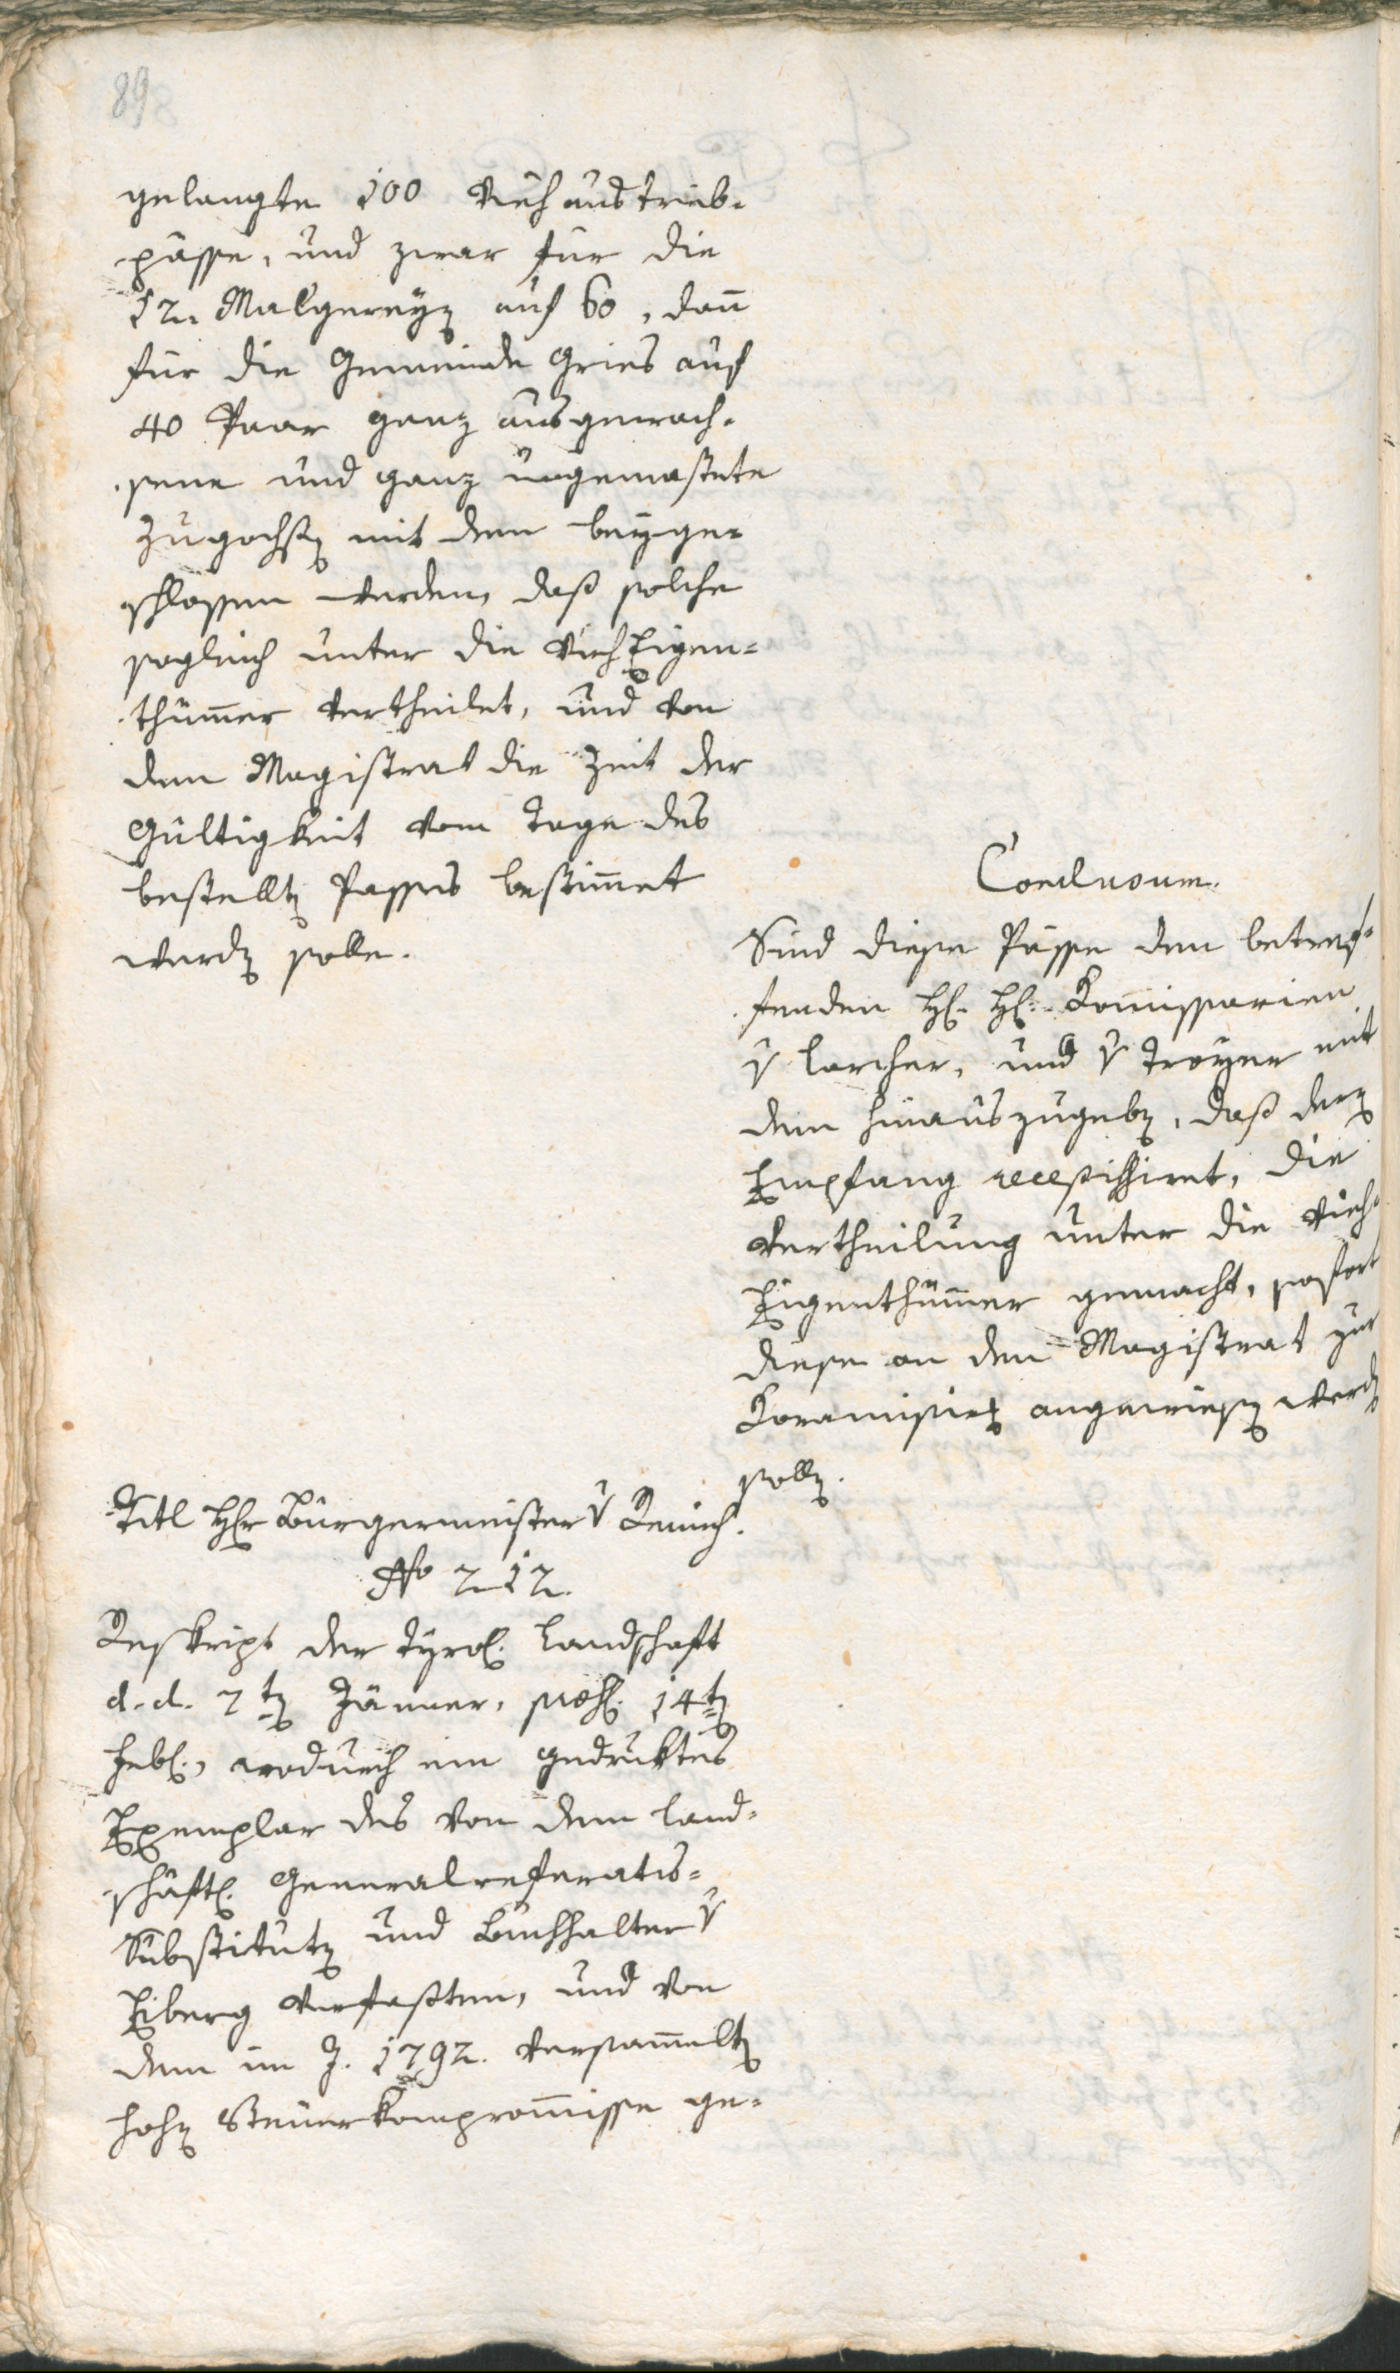 89
gelangte 100 Viehaustrieb-
pässe, und zwar für die
12. Malgreyen auf 60, dann
für die Gemeinde Gries auf
40 Paar ganz ausgewach-
sene und ganz ungemastete
Zugochsen mit dem beyge-
schlossen werden, daß solche
sogleich unter die Vieh Eigen-
thümmer vertheilet, und von
dem Magistrat die Zeit der
Gültigkeit vom Tage des
bestellten Passes bestimmet
werden solle.
Conclusum.
Sind diese Pässe den betref-
fenden H. H. Kommissarien
v Larcher, und v Troyer mit
dem hinauszugeben, daß deren
Empfang recepissiret, die
Vertheilung unter die Vieh-
Eigenthümmer gemacht, sofort
diese an den Magistrat zur
angewiesen werden
sollen.
Titl Herr Bürgermeister v
No 212.
Reskript der Tyrol. Landschaft
d. d. 7ten Jänner, 14ten
Feb., wodurch ein gedruktes
Exemplar des von dem land-
schäftl. Generalreferats-
Substituten und Buchhalter v
Eiberg verfaßten, und von
dem im J. 1792. versammelten
hohen Steuerkompromisse ge-